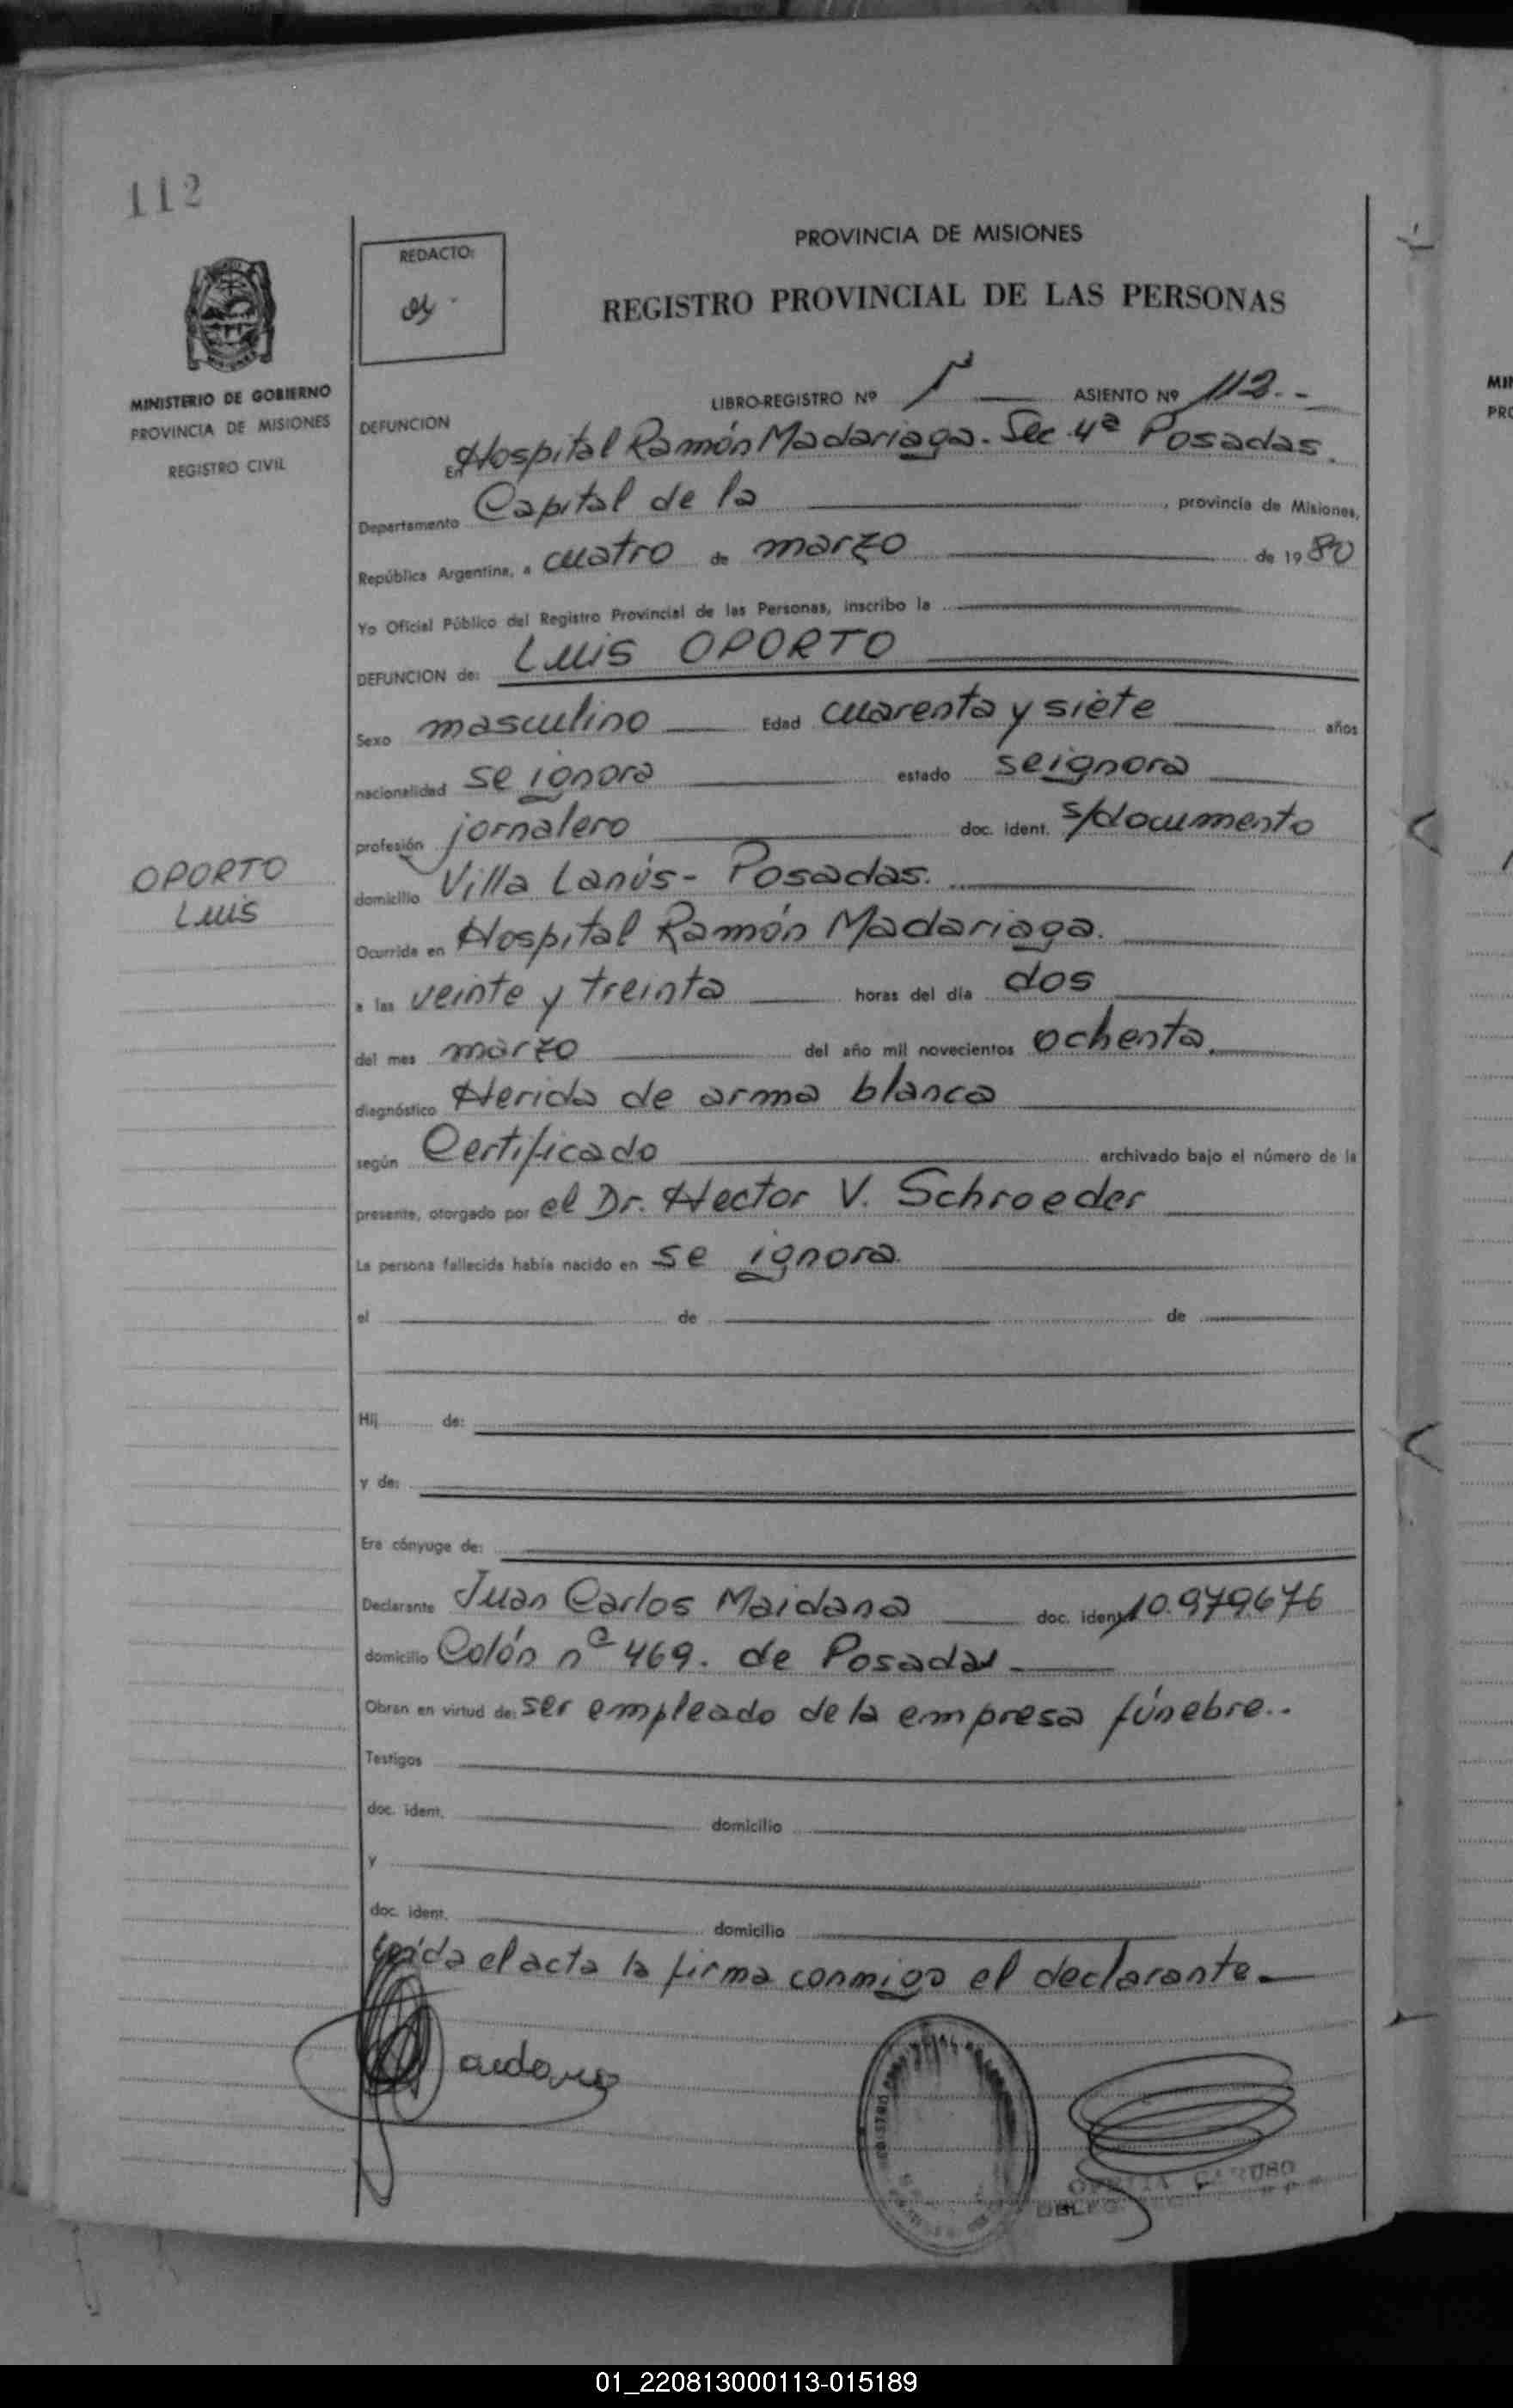 112
REDACTO:
PROVINCIA DE MISIONES
REGISTRO PROVINCIAL DE LAS PERSONAS
MINISTERIO DE GOBIERNO
PROVINCIA DE MISIONES
REGISTRO CIVIL
LIBRO-REGISTRO Nº 1 ASIENTO Nº 112.-
DEFUNCION
En Hospital Ramón Madariaga. Sec 4ª Posadas.
Departamento Capital de la , provincia de Misiones,
República Argentina, a cuatro de marzo de 1980
Yo Oficial Público del Registro Provincial de las Personas, inscribo la
DEFUNCION de: Luis OPORTO
Sexo masculino Edad cuarenta y siete años
nacionalidad se ignora estado se ignora
profesión jornalero doc. ident. s/documento
OPORTO
Luis
domicilio Villa Lanús- Posadas.
Ocurrida en Hospital Ramón Madariaga.
a las veinte y treinta horas del día dos
del mes marzo del año mil novecientos ochenta.
diagnóstico Herida de arma blanca
según Certificado archivado bajo el número de la
presente, otorgado por el Dr. Hector V. Schroeder
La persona fallecida había nacido en se ignora.
el de de
Hij de:
y de:
Era cónyuge de:
Declarante Juan Carlos Maidana doc. ident. 10.979.676
domicilio Colón nº 469. de Posadas
Obran en virtud de: ser empleado de la empresa fúnebre..
Testigos
doc. ident. domicilio
y
doc. ident. domicilio
Leída el acta la firma conmigo el declarante.
CARUSO
01_220813000113-015189